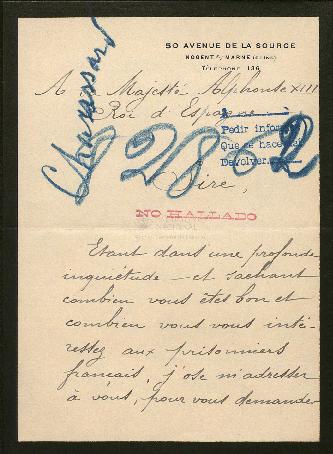 50 AVENUE DE LA SOURCE
NOGENT S/ MARNE (SEINE)
TÉLÉPHONE 136
A Majesté Alphonse XIII
Roi d'Espagne
Pedir
Que se hace
Devolver
28002
Sire,
NO HALLADO
Etant dans une profonde
inquiétude — et sachant
combien vous êtes bon et
combien vous vous inté-
ressez aux prisonniers
français, j'ose m'adresser
à vous, pour vous demander